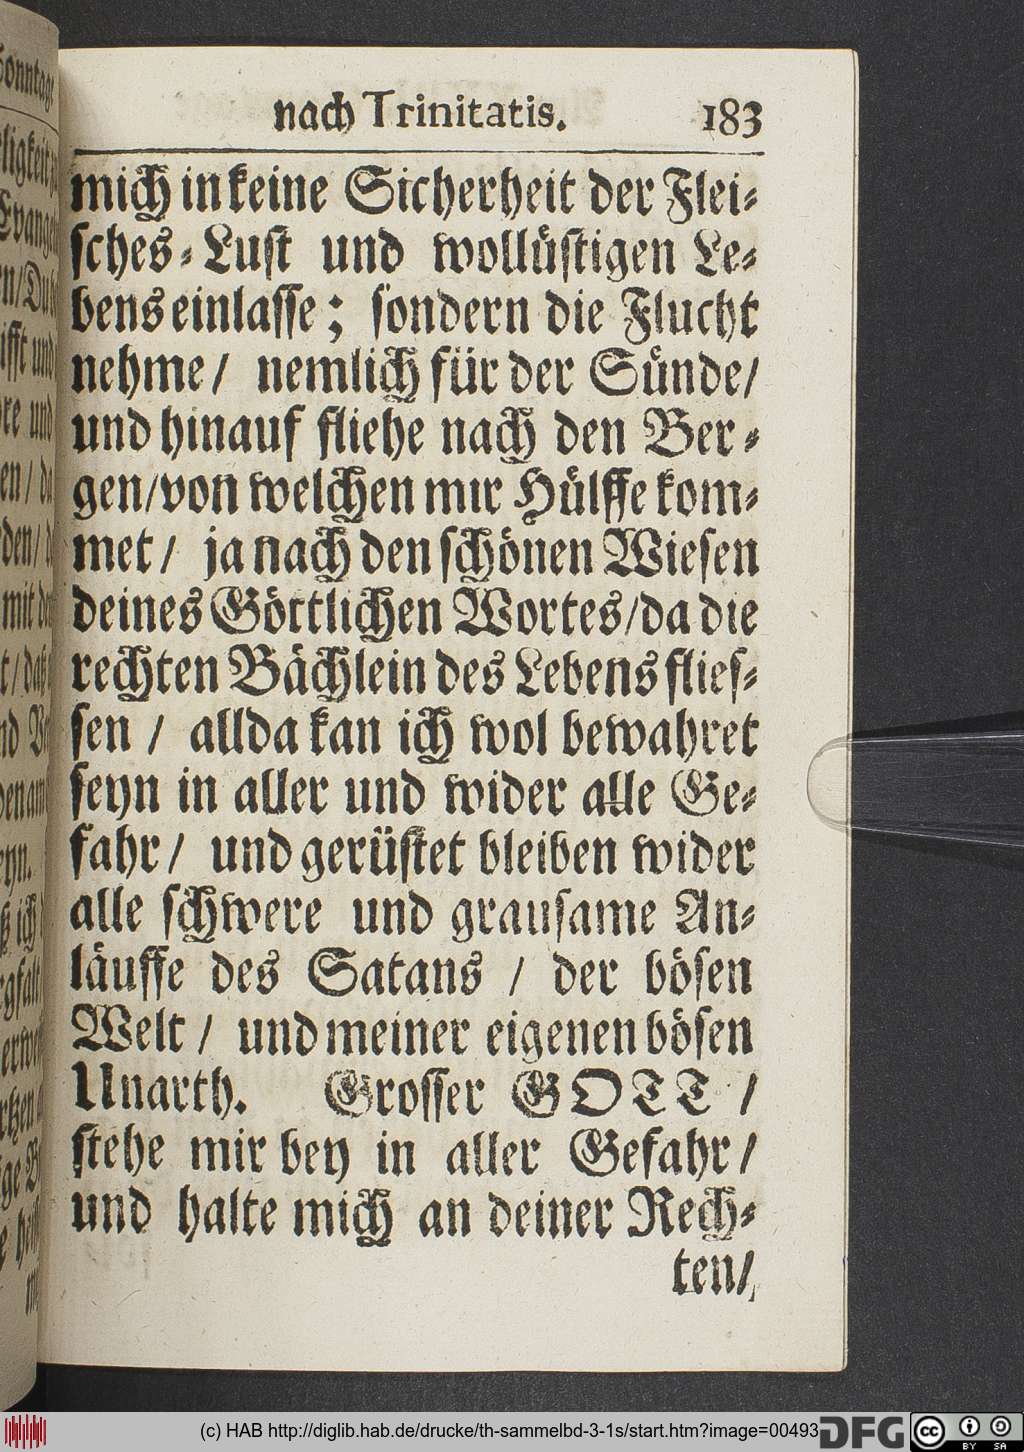 nach Trinitatis. 183
mich in keine Sicherheit der Flei-
sches-Lust und wollüstigen Le-
bens einlasse; sondern die Flucht
nehme / nemlich für der Sünde/
und hinauf fliehe nach den Ber-
gen/von welchen mir Hülffe kom-
met / ja nach den schönen Wiesen
deines Göttlichen Wortes/da die
rechten Bächlein des Lebens flies-
sen / allda kan ich wol bewahret
seyn in aller und wider alle Ge-
fahr / und gerüstet bleiben wider
alle schwere und grausame An-
läuffe des Satans / der bösen
Welt / und meiner eigenen bösen
Unarth. Grosser GOTT /
stehe mir bey in aller Gefahr /
und halte mich an deiner Rech-
ten/
(c) HAB http://diglib.hab.de/drucke/th-sammelbd-3-1s/start.htm?image=00493
DFG
cc BY SA